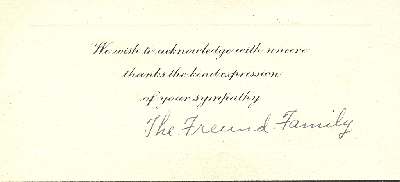 We wish to acknowledge with sincere
thanks the kind expression
of your sympathy
The Freund Family